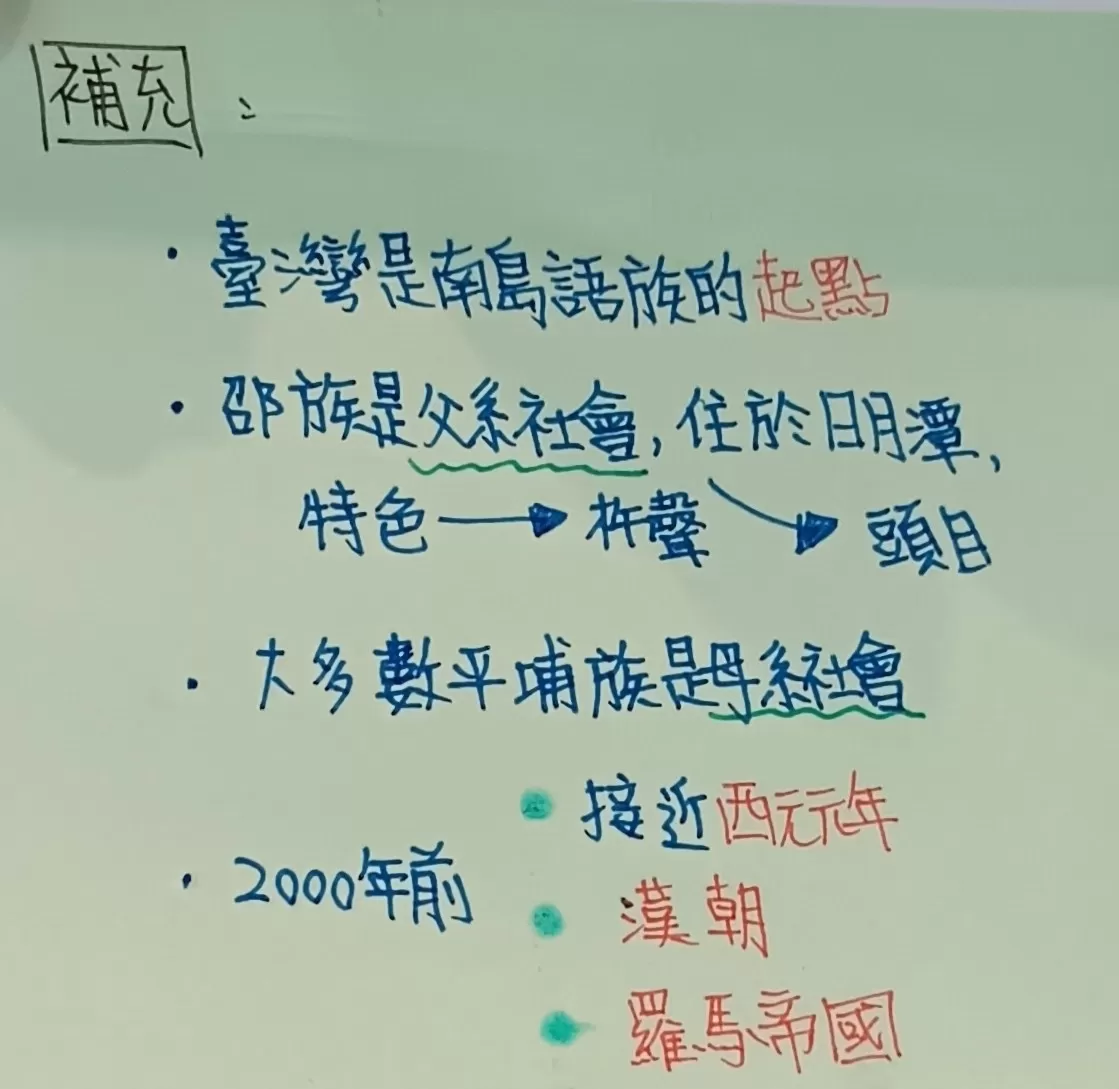 補充：
・臺灣是南島語族的起點
・邵族是父系社會，住於日月潭，
特色→杵聲 → 頭目
・大多數平埔族是母系社會
・2000年前
・接近西元元年
・漢朝
・羅馬帝國